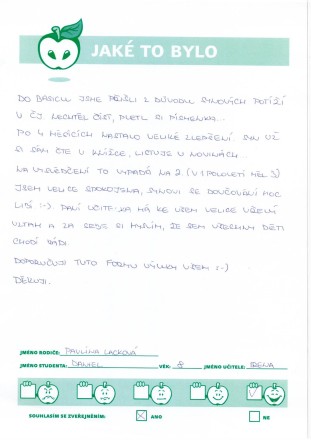 JAKÉ TO BYLO
DO BASICU JSME PŘIŠLI Z DŮVODU SYNOVÝCH POTÍŽÍ
V ČJ. NECHTĚL ČÍST, PLETL SI PÍSMENKA..
PO 4 MĚSÍCÍCH NASTALO VELIKÉ ZLEPŠENÍ. SYN UŽ
SI SÁM ČTE V KNÍŽCE, LISTUJE V NOVINÁCH..
NA VYSVĚDČENÍ TO VYPADÁ NA 2. (V 1. POLOLETÍ MĚL 3)
JSEM VELICE SPOKOJENA, SYNOVI SE DOUČOVÁNÍ MOC
LÍBÍ :-) PANÍ UČITELKA MÁ KE VŠEM VELICE VŘELÝ
VZTAH A ZA SEBE SI MYSLÍM, ŽE SEM VŠECHNY DĚTI
CHODÍ RÁDI.
DOPORUČUJI TUTO FORMU VÝUKY VŠEM :-)
DĚKUJI.
JMÉNO RODIČE: PAVLÍNA LACKOVÁ
JMÉNO STUDENTA: DANIEL VĚK: 8 JMÉNO UČITELE: IRENA
SOUHLASÍM SE ZVEŘEJNĚNÍM: ANO NE